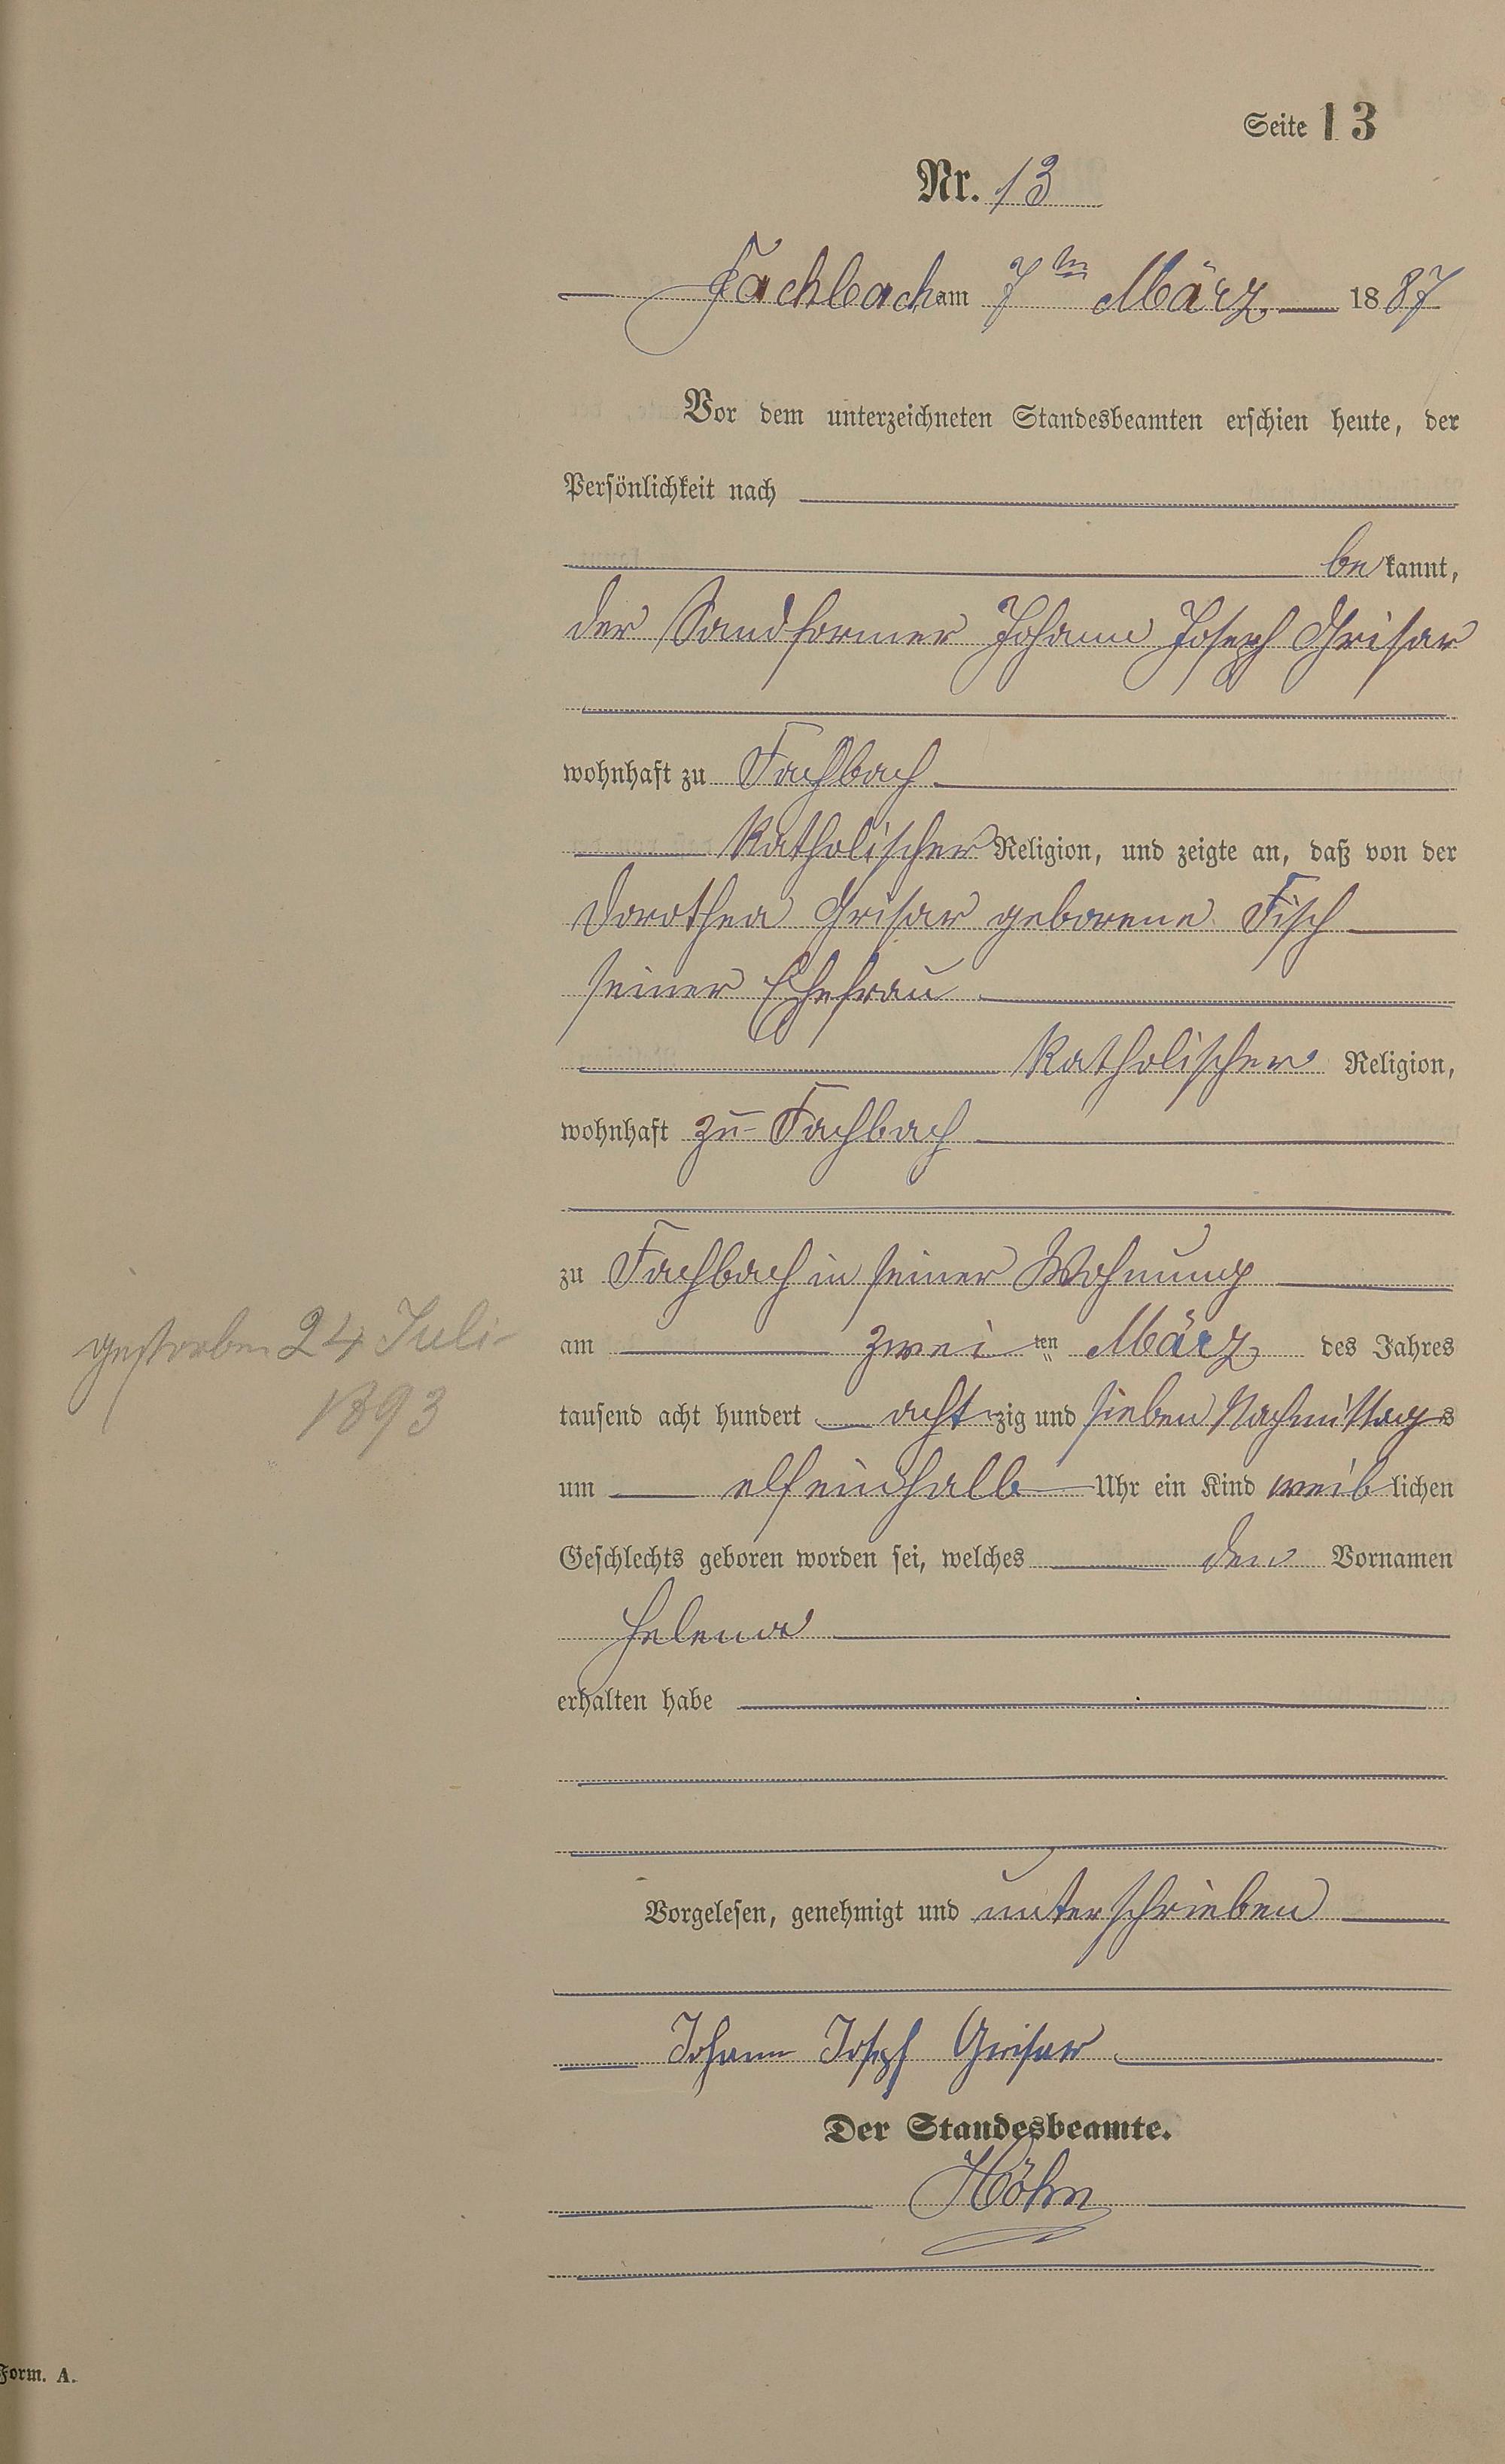 Seite 13
Nr. 13
Fachbach am 7ten März 1887
Vor dem unterzeichneten Standesbeamten erschien heute, der
Persönlichkeit nach
bekannt,
der Sandformer Johann Joseph Grisar
wohnhaft zu Fachbach
katholischer Religion, und zeigte an, daß von der
Dorothea Grisar geborene Fisch
seiner Ehefrau
katholischer Religion,
wohnhaft zu Fachbach
zu Fachbach in seiner Wohnung
am zweiten März des Jahres
tausend acht hundert achtzig und sieben Nachmittags
um elfeinhalb Uhr ein Kind weiblichen
Geschlechts geboren worden sei, welches den Vornamen
Helena
erhalten habe
Vorgelesen, genehmigt und unterschrieben
Johann Joseph Grisar
Der Standesbeamte.
Höhn
gestorben 24 Juli
1893
Form. A.